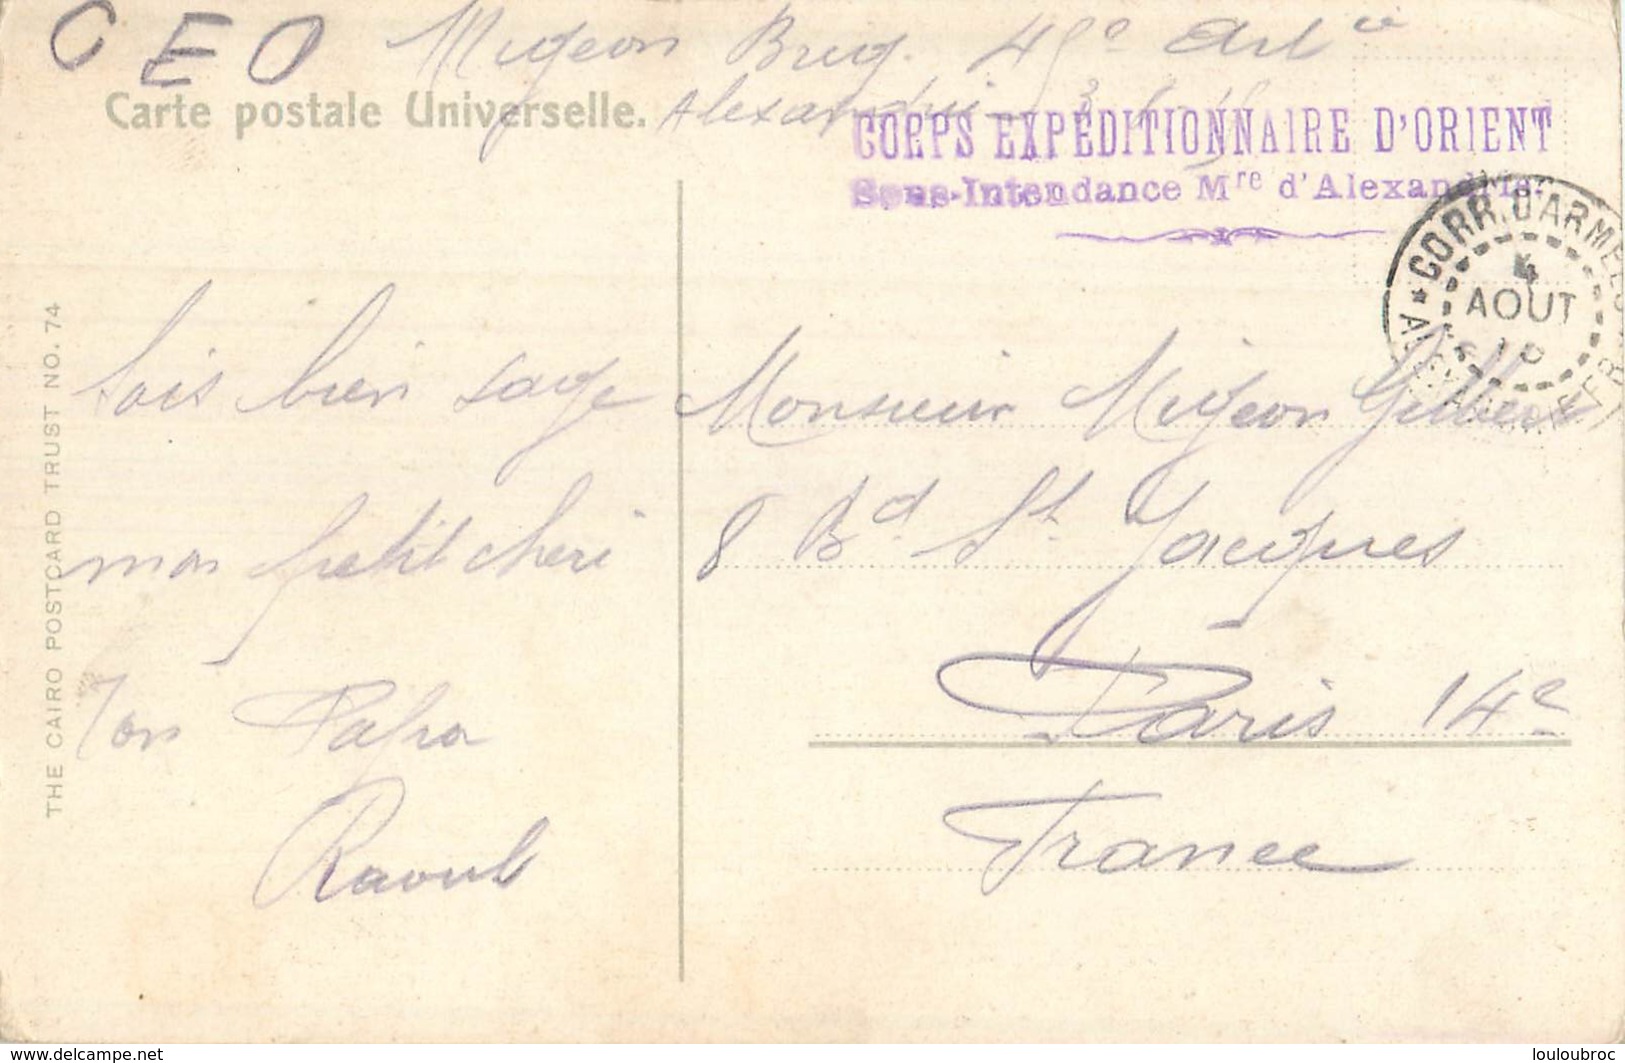 CEO Migeon Brig. 49e Artie
Carte postale Universelle.
Alexandrie 3
CORPS EXPÉDITIONNAIRE D'ORIENT
Sous-Intendance Mre d'Alexandrie.
CORR. D'ARMEES
ALEXANDRIE
4
AOUT
15
THE CAIRO POSTCARD TRUST NO. 74
Sois bien sage
mon petit cheri
Ton Papa
Raoul
Monsieur Migeon Gilbert
8 Bd St Jacques
Paris 14e
France
www.delcampe.net
louloubroc